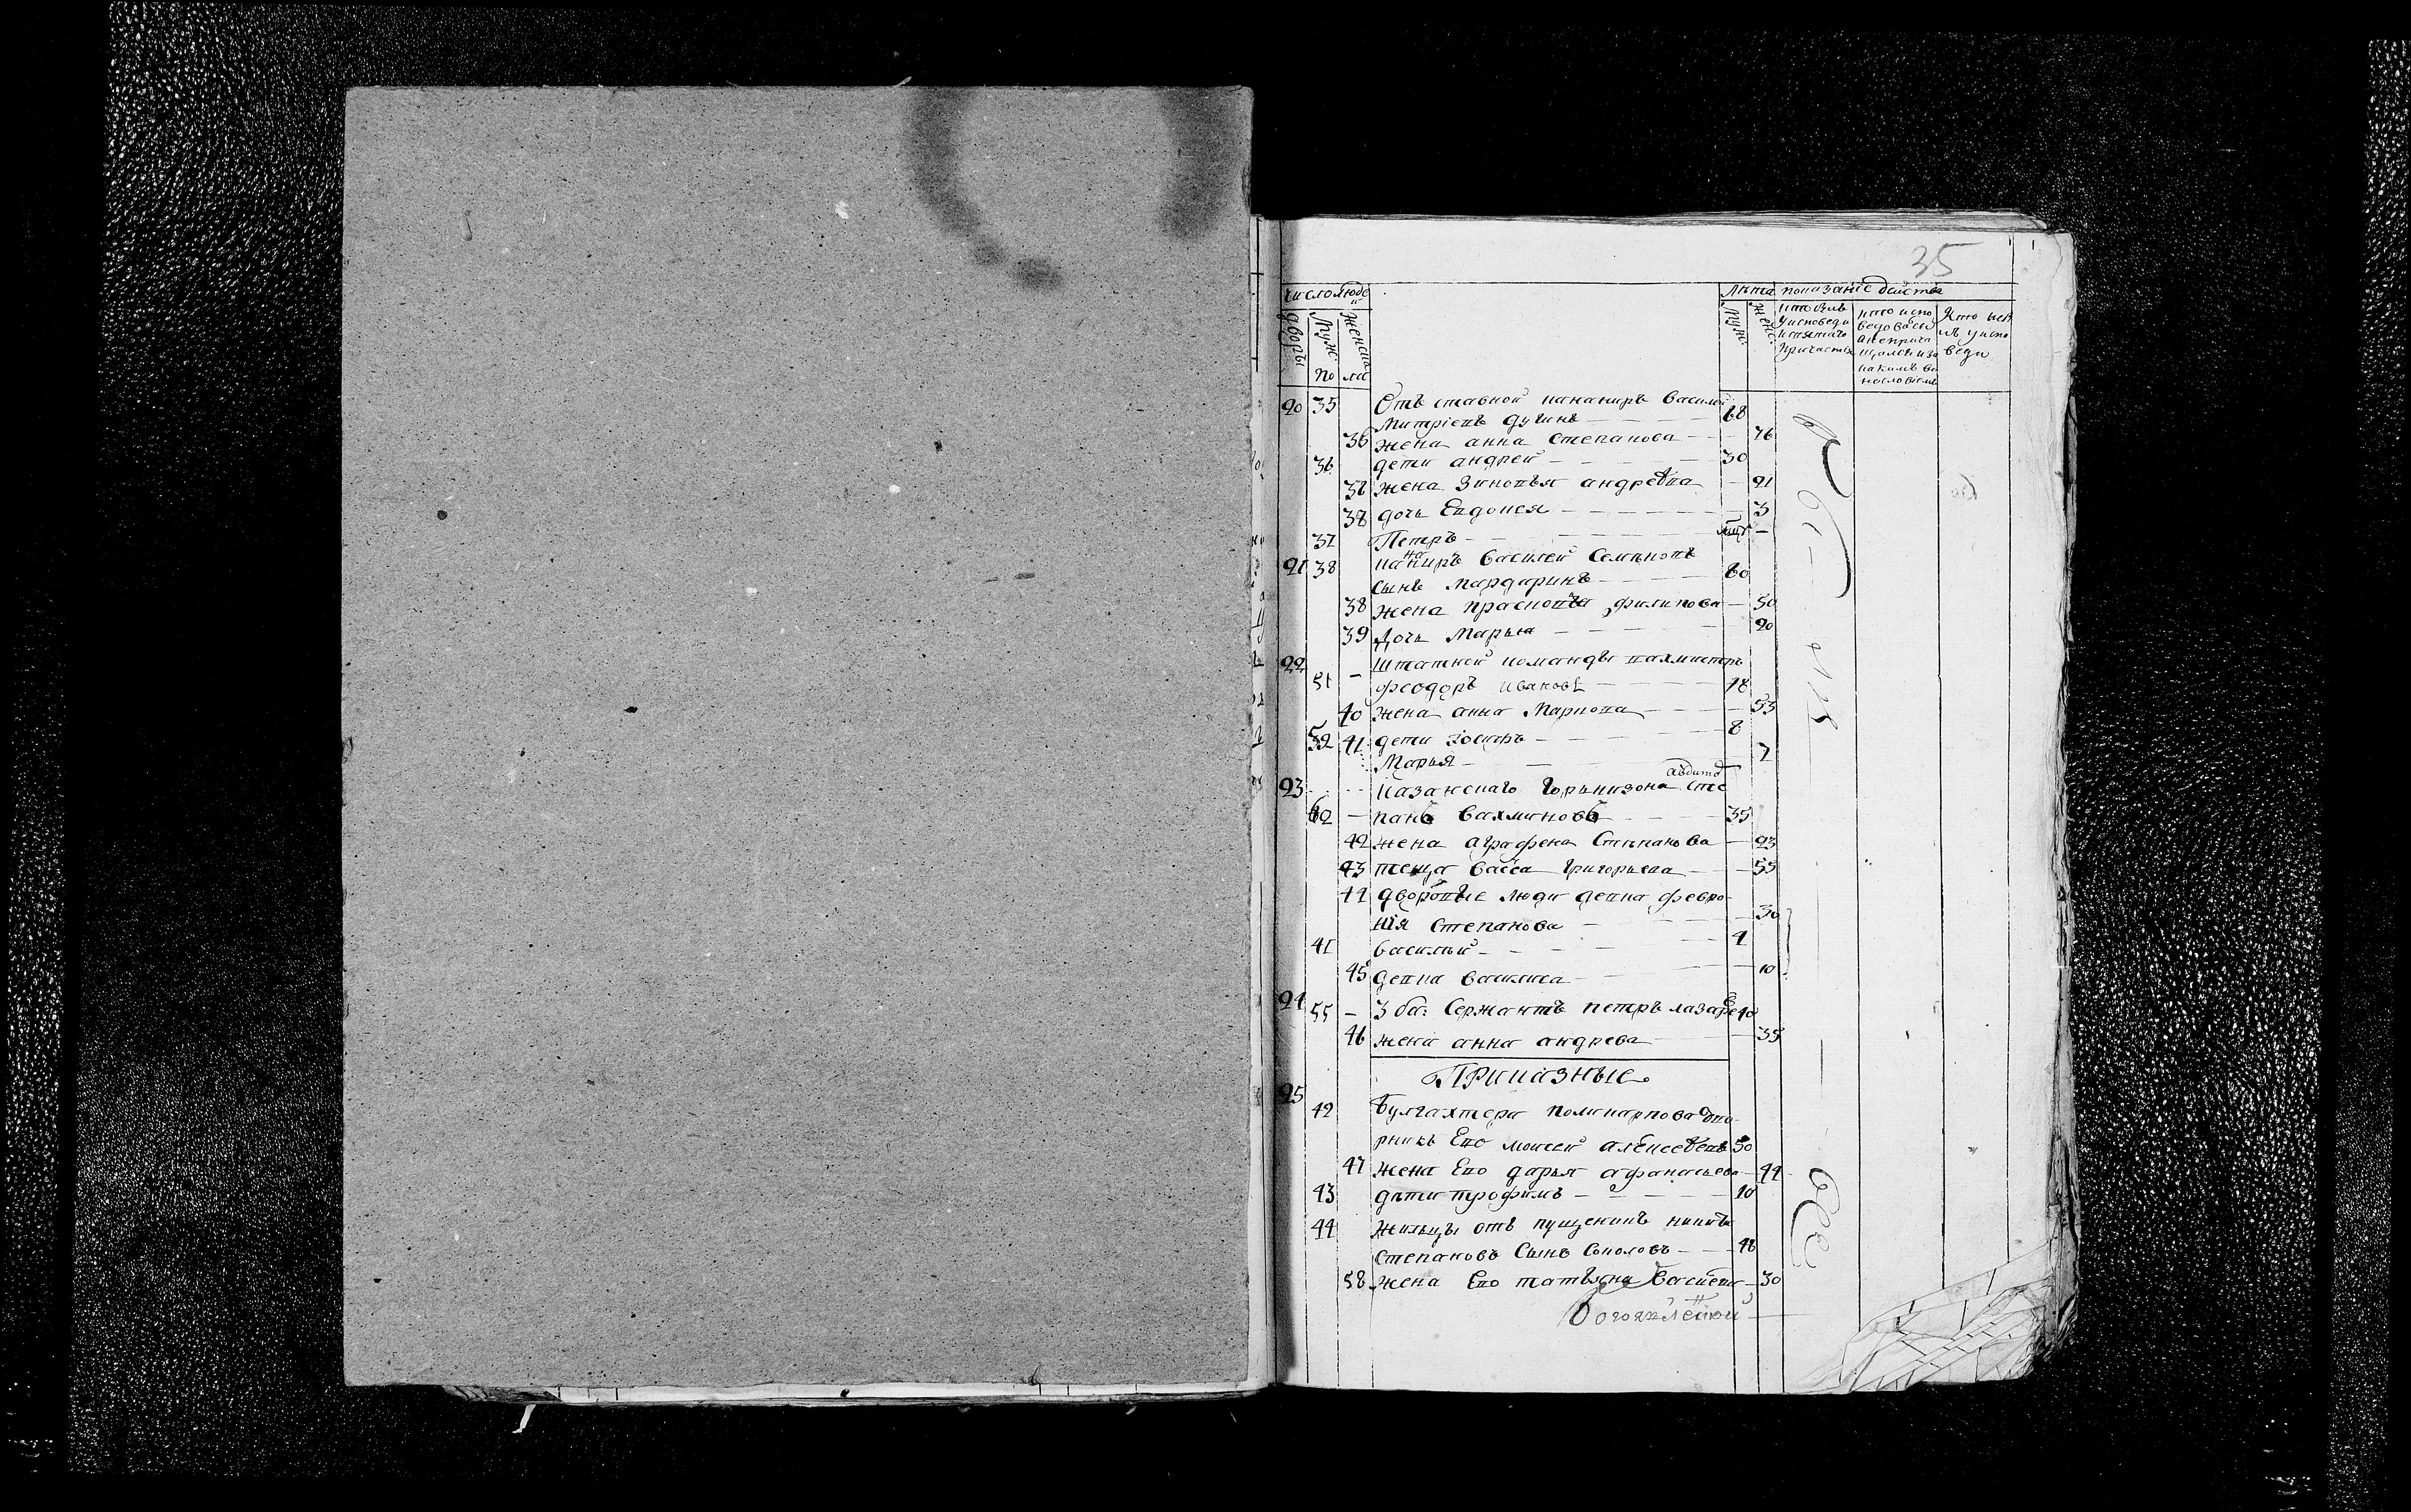 35
число людей лѣта показаніе действа
дворы муж. женска муж. женс.
по лъ
кто былъ у исповеди и святаго причастія
кто испо ведовался а не прича щался и за какимъ ви нословіемъ
кто не былъ у испо веди
20 35 Отъ ставной кананиръ василей
Митріевъ дучинъ 68
36 жена анна степанова 76
36 дети андрей 30
37 жена Зиновья андреѣва 21
38 дочь Евдокея 3
37 Петръ
21 38 канониръ василей Семѣновъ
сынъ Мардаринъ 60
38 жена прасковья филипова 50
39 Дочь Марья 20
22 Штатной команды вахмистръ
51 – феодоръ ивановъ 78
40 жена анна Маркова 53
52 41 дети 8
Марья 7
23 казанскаго Горънизона авдитор сте
62 – панъ вахминовъ 35
42 жена аграфена Степанова 23
43 теща васса Григорьева 55
44 дворовые люди девка февро
нія степанова 30
41 василий 4
45 девка василиса 10
24 55 – 3 ба: Сержантъ петръ лазарев 40
46 жена анна андрева 35
Приказные
25 42 Бухгахтера поликарпова
рникъ Ево моисей алексеѣвъ 50
47 жена Ево дарья афанасьева 44
43 дѣти трофимъ 10
44 жильцы отъ пущеникъ никита
степановъ Сынъ Соколовъ 48
58 жена Ево татьяна Васильева 30
богоявленской